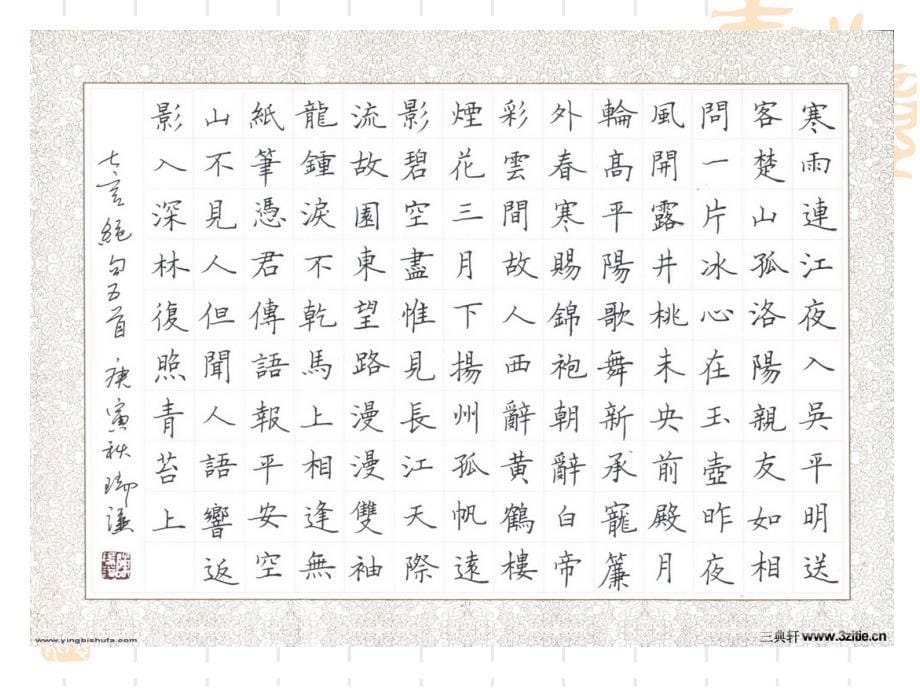 寒雨連江夜入吳平明送
客楚山孤洛陽親友如相
問一片冰心在玉壺昨夜
風開露井桃未央前殿月
輪髙平陽歌舞新承寵簾
外春寒賜錦袍朝辭白帝
彩雲間故人西辭黃鶴樓
煙花三月下揚州孤帆遠
影碧空盡惟見長江天際
流故園東望路漫漫雙袖
龍鍾淚不乾馬上相逢無
紙筆憑君傳語報平安空
山不見人但聞人語響返
影入深林復照青苔上
七言絕句五首 庚寅秋
www.yingbishufa.com
三典轩 www.3zitie.cn